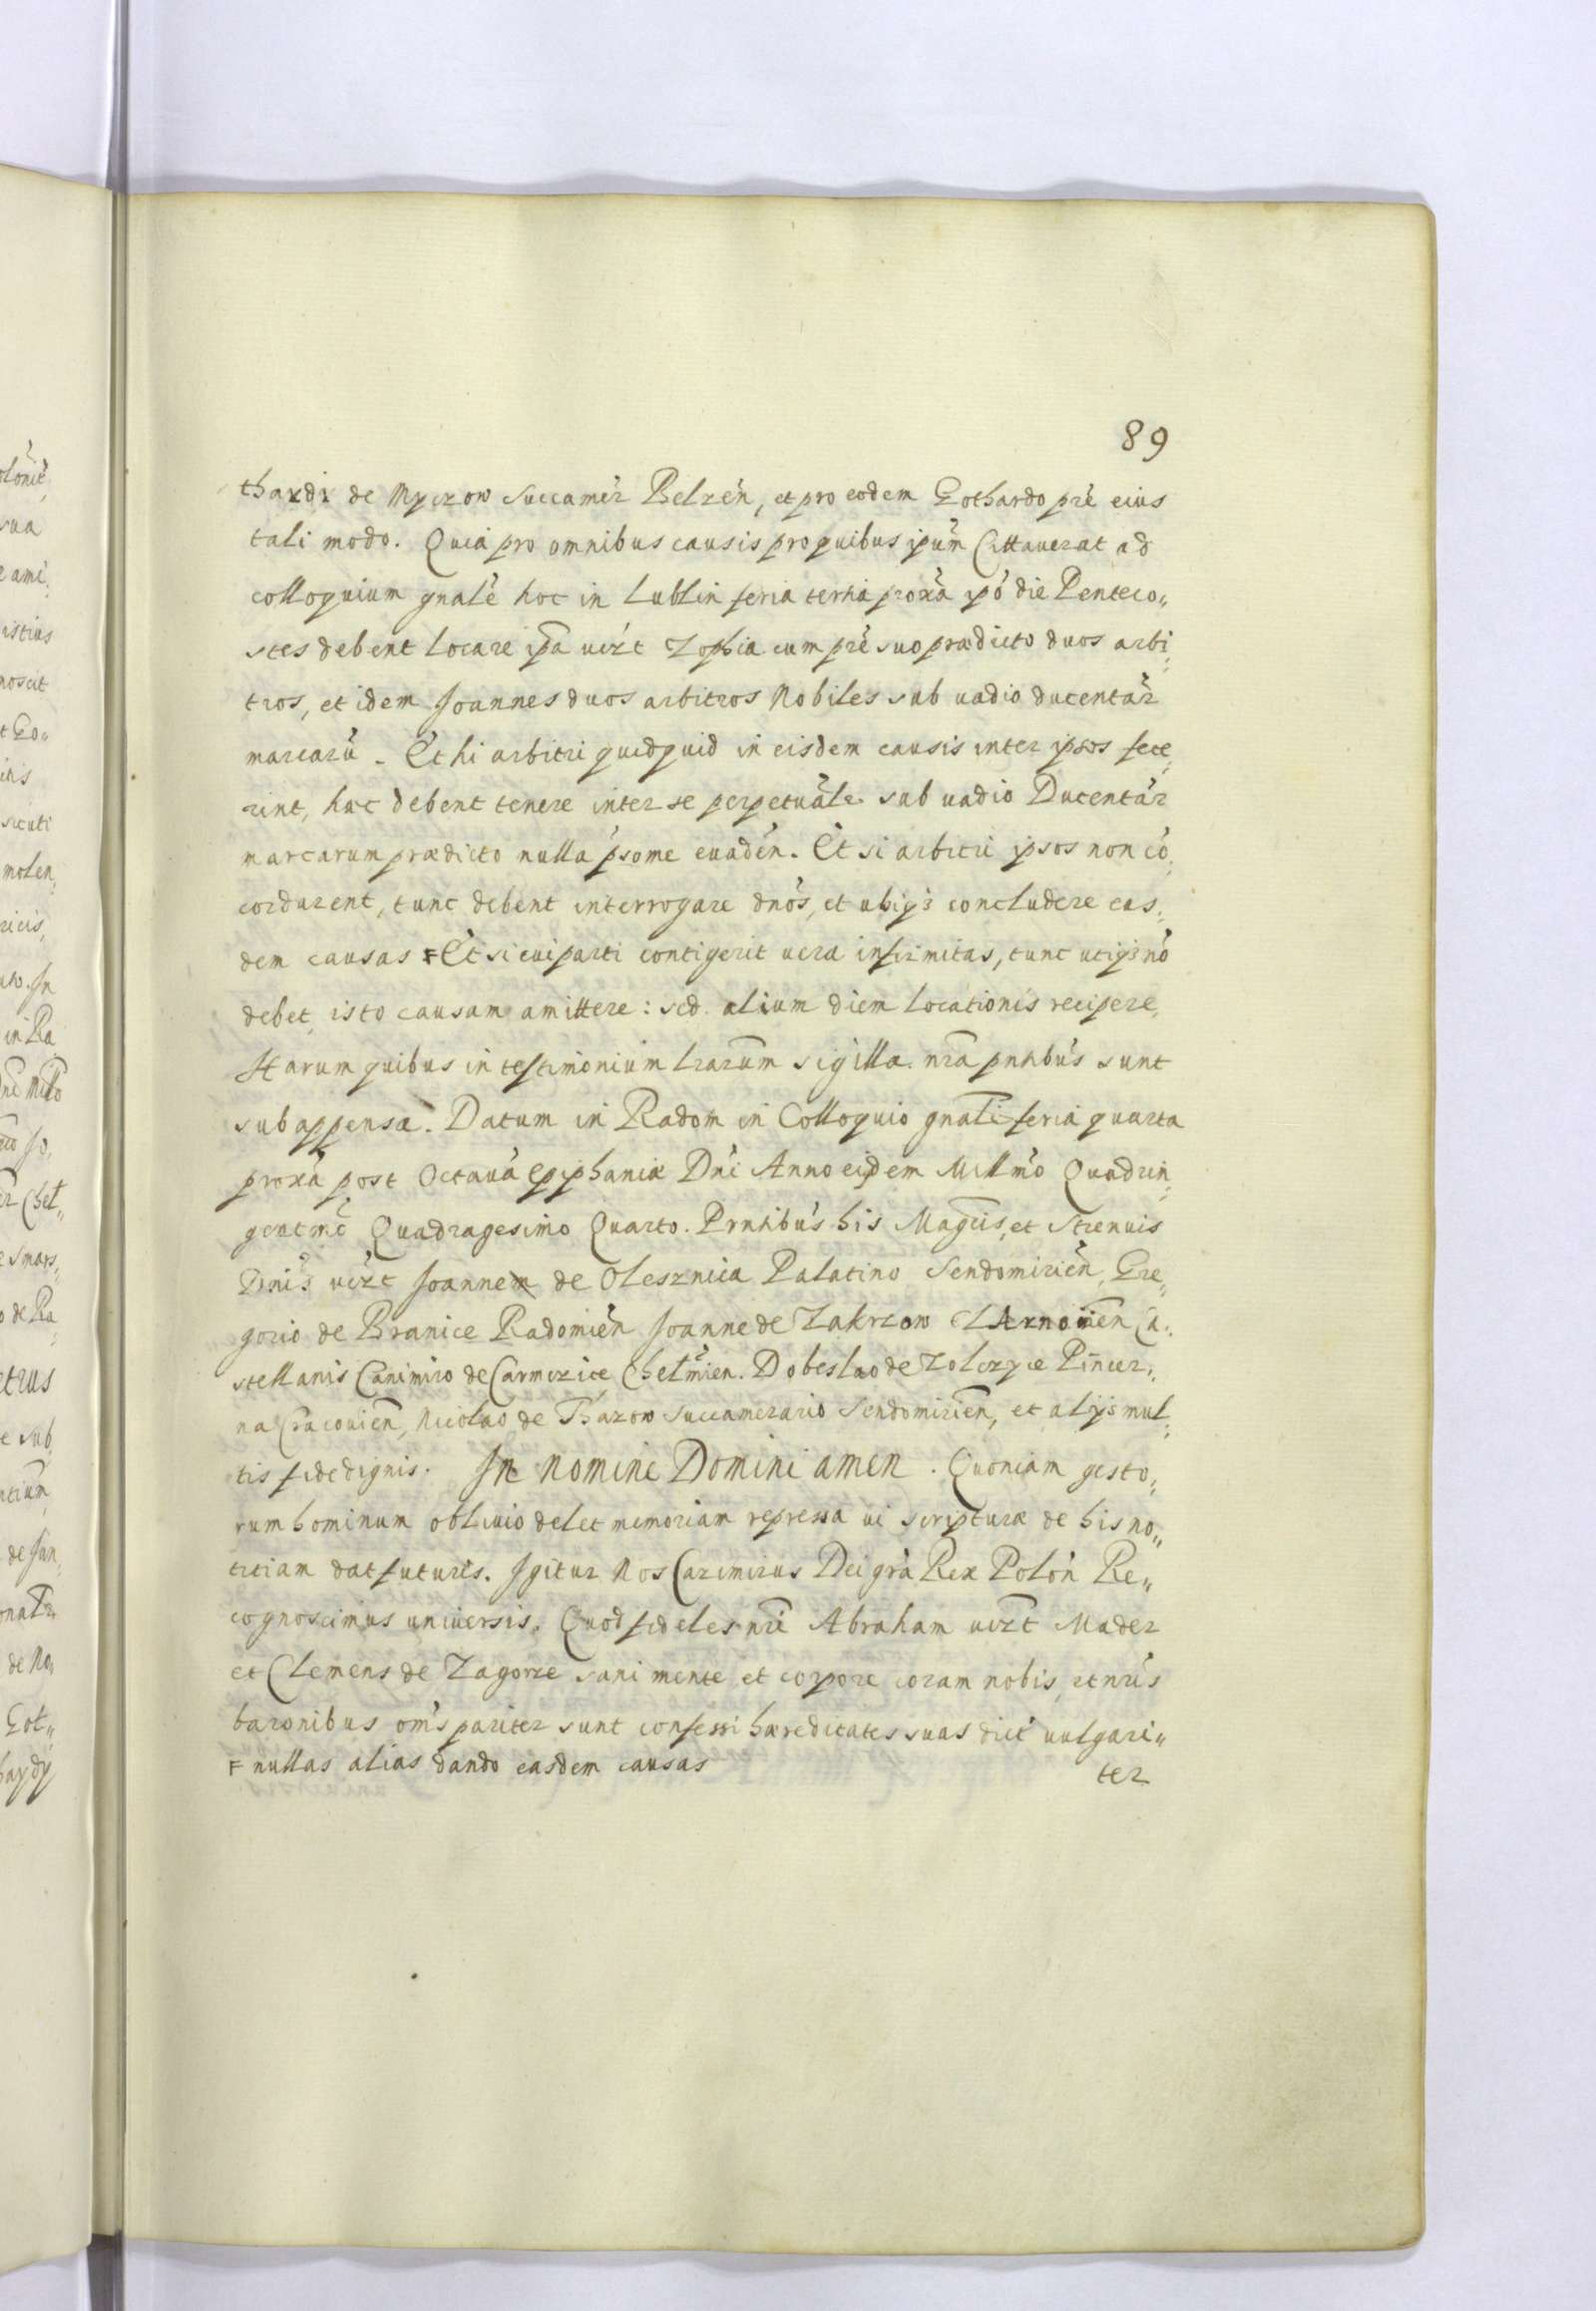 89
thardi de Myczow Succamer̃ Belzeń, et pro eodem Gothardo prẽ eius
tali modo. Quia pro omnibus causis pro quibus ipum̃ Cittauerat ad
colloquium gnalẽ hoc in Lublin feria tertia proxã pó die Penteco„
stes debent locare ipã uizt Zophia cum prẽ suo prædicto duos arbi„
tros, et idem Joannes duos arbitros Nobiles sub uadio ducentar̃
marcarũ. Et hi arbitri quidquid in eisdem causis inter ipsos fece„
rint, hoc debent tenere inter se perpetuãle sub uadio Ducentar̃
marcarum prædicto nulla ṕsome euadeń. Et si arbitrii ipsos non cõ„
cordarent, tunc debent interrogare dnõs, et ubiq3 concludere eas„
dem causas F Et si cui parti contigerit uera infirmitas, tunc utiq3 nõ
debet isto causam amittere: sed alium diem locationis recipere,
Harum quibus in testimonium lrarum̃ sigilla nrã pntibús sunt
subappensa. Datum in Radom in Colloquio gnali feria quarta
proxã post Octauã Epiphaniæ Dnĩ Anno eidem Millmõ Quadrin„
gentmõ Quadragesimo Quarto. Prntibús his Magcis, et Strenuis
Dnĩs uizt Joannem de Olesznica Palatino Sendomirień, Gre„
gorio de Branice Radomień Joanne de Zakrzow Czarnoień Ca„
stellanis Canimiro de Carmezice Chełmień. Dobeslao de Zolczyce Pincer„
na Cracouień, Nicolao de Thazow Succamerario Sendomirień, et alijs mul„
tis fidedignis. In nomine Domini amen. Quoniam gesto„
rum hominum obliuio delet memoriam repressa ui scripturæ de his no„
titiam dat futuris. Igitur Nos Cazimirus Dei grã Rex Polon̉ Re„
cognoscimus uniuersis. Quod fideles nrĩ Abraham uizt Mader
et Clemens de Zagorze sani mente et corpore coram nobis, et nrĩs
baronibus om̃s pariter sunt confessi hæreditates suas dict̉ uulgari„
F nullas alias dando easdem causas
ter